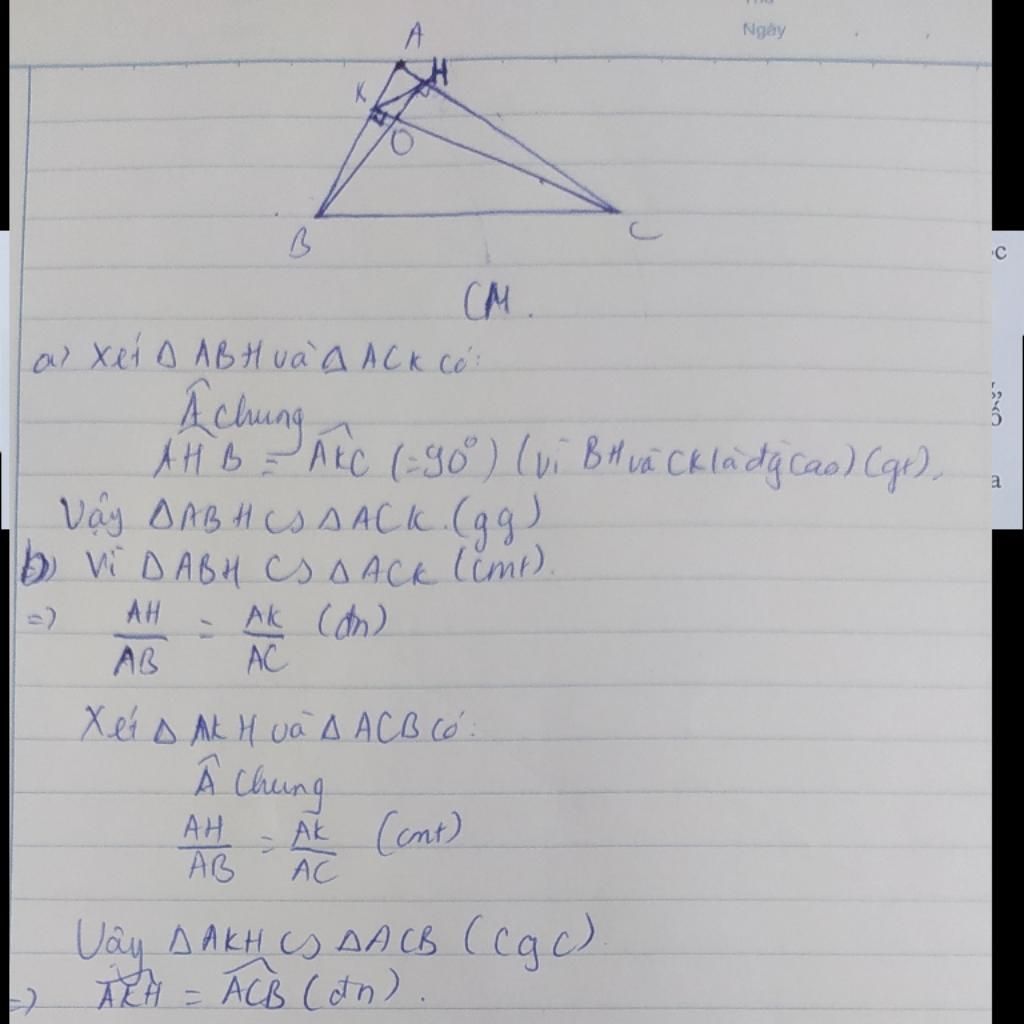 Ngày
A
H
K
O
B
C
CM.
a) Xét Δ ABH và Δ ACK có:
Â chung
\widehat{AHB} = \widehat{AKC} (=90°) (vì BH và CK là đg cao) (gt).
Vậy ΔABH ∽ ΔACK. (gg)
b) Vì ΔABH ∽ ΔACK (cmt).
=> AH/AB = AK/AC (đn)
Xét Δ AKH và Δ ACB có:
Â chung
AH/AB = AK/AC (cmt)
Vậy ΔAKH ∽ ΔACB (cgc).
=> \widehat{AKH} = \widehat{ACB} (đn).
c
ố
a